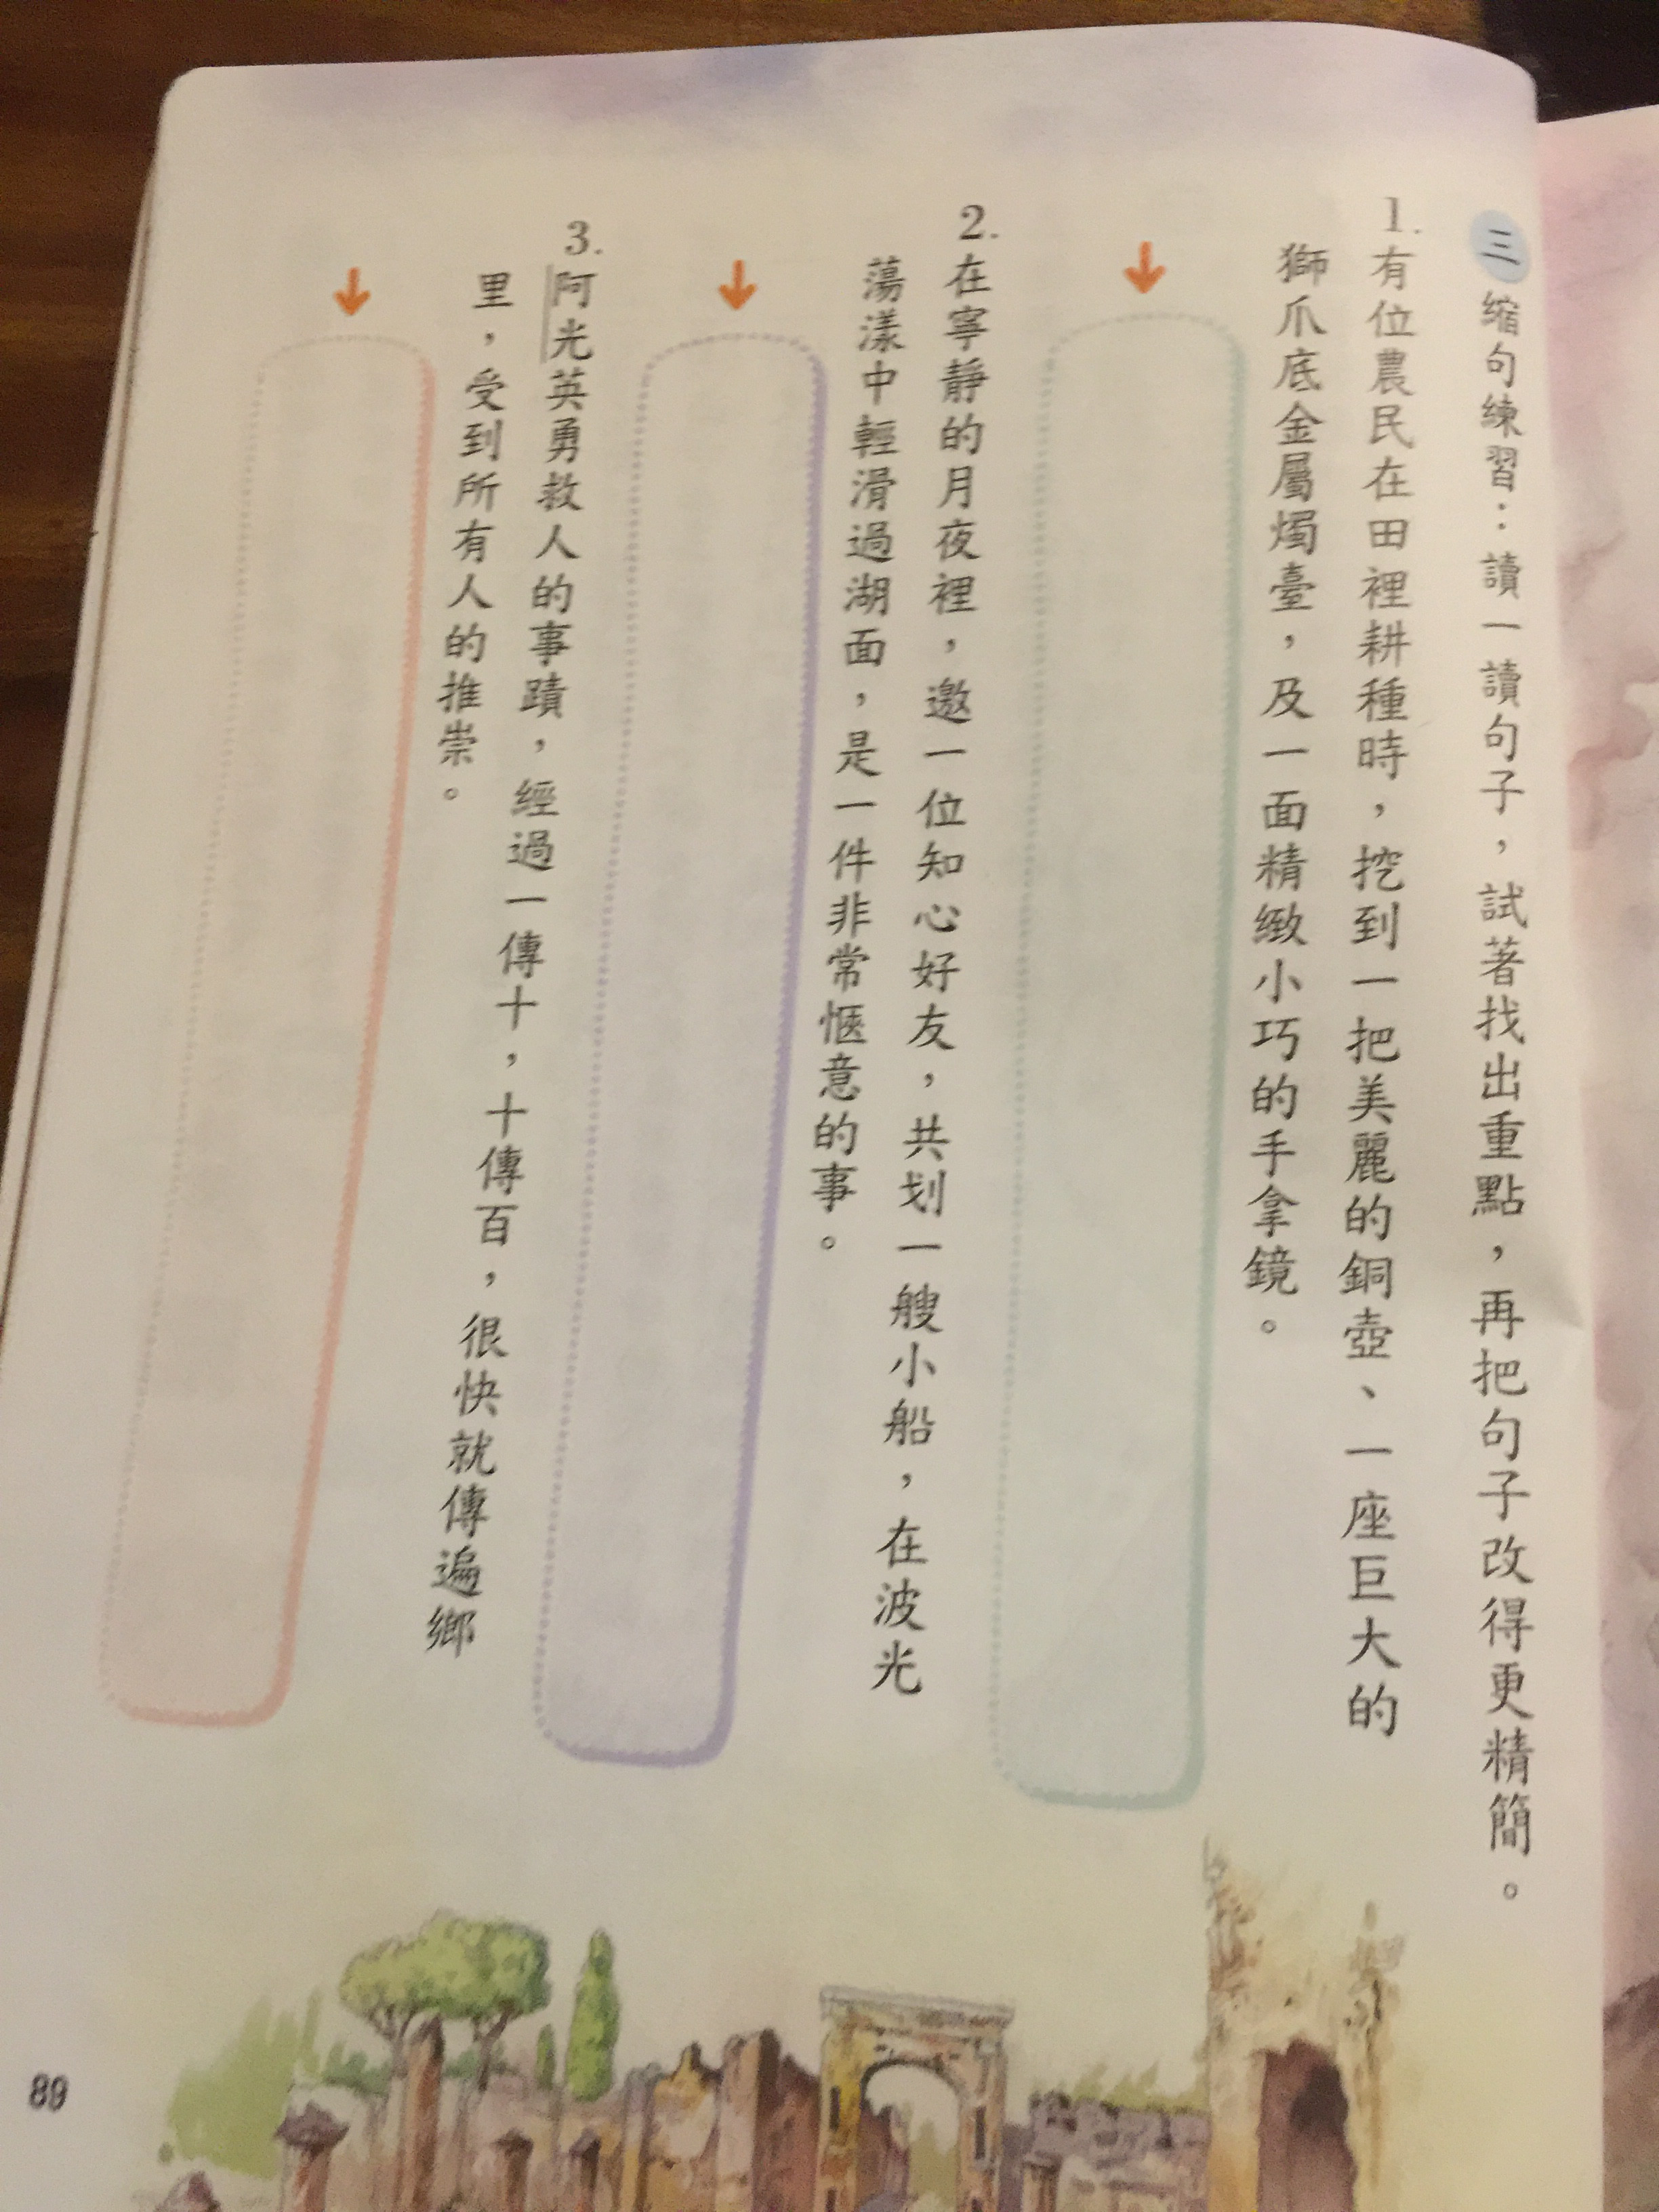 三 縮句練習：讀一讀句子，試著找出重點，再把句子改得更精簡。
1.有位農民在田裡耕種時，挖到一把美麗的銅壺、一座巨大的
獅爪底金屬燭臺，及一面精緻小巧的手拿鏡。
2.在寧靜的月夜裡，邀一位知心好友，共划一艘小船，在波光
蕩漾中輕滑過湖面，是一件非常愜意的事。
3.阿光英勇救人的事蹟，經過一傳十，十傳百，很快就傳遍鄉
里，受到所有人的推崇。
89